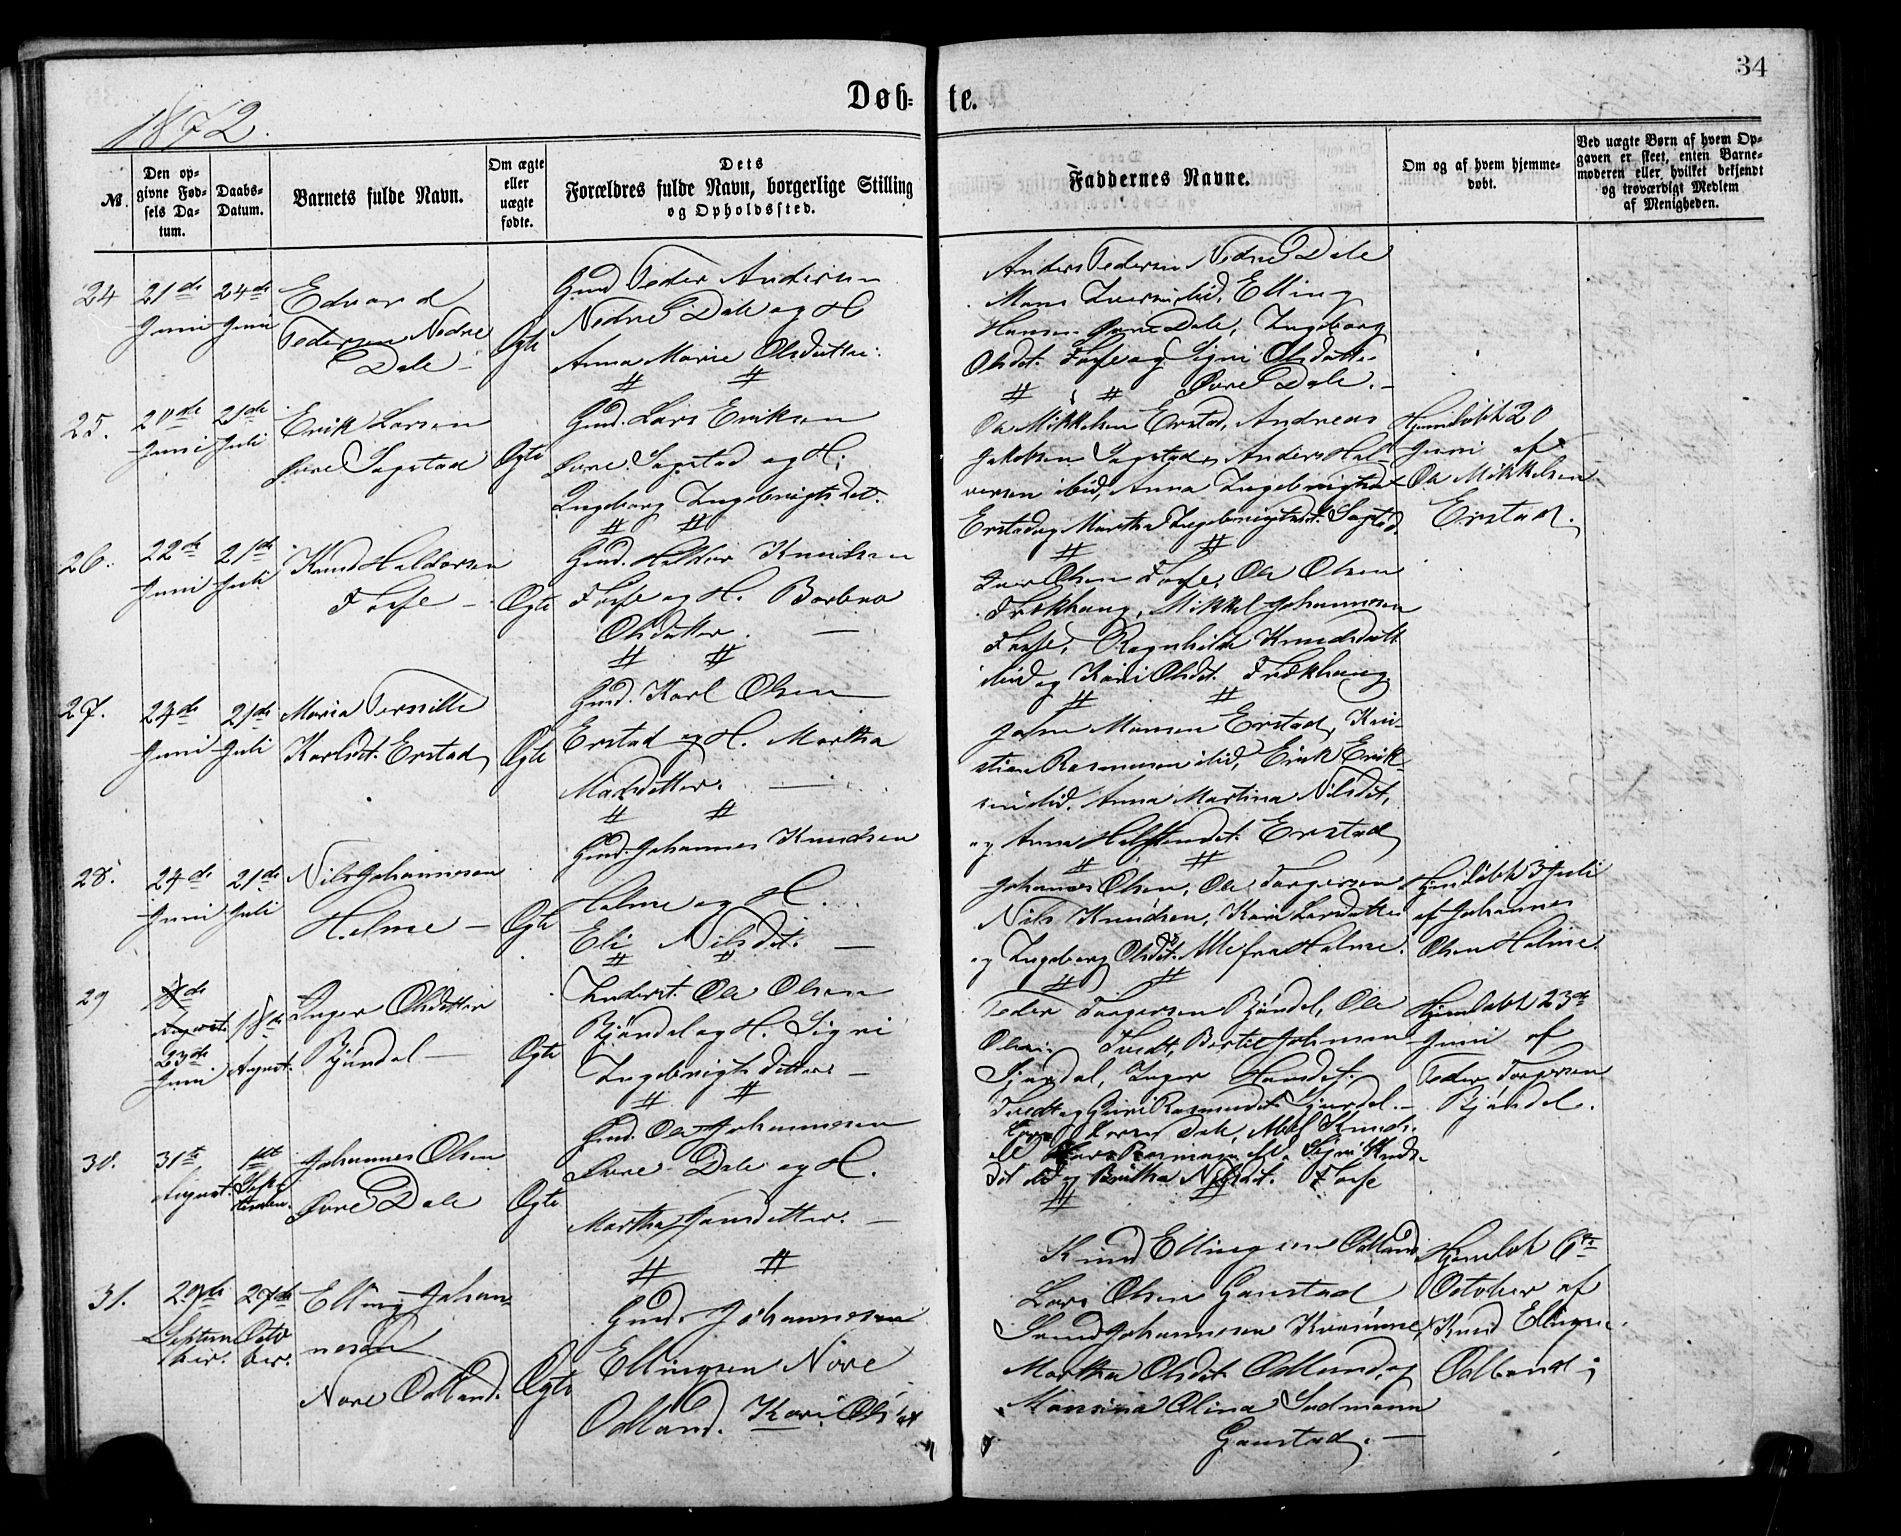 34
1872.
Døb- te.
№
Den opgivne Fødsels Datum.
Daabs-Datum.
Barnets fulde Navn.
Om ægte eller uægte fødte.
Dets Forældres fulde Navn, borgerlige Stilling og Opholdssted.
Faddernes Navne.
Om og af hvem hjemmedøbt.
Ved uægte Børn af hvem Opgaven er skeet, enten Barnemoderen eller hvilket bekjendt og troværdigt Medlem af Menigheden.
24 21de Juni 24de Juni
Edvard
Pedersen Nedre
Dale
Ægte
Gmd Peder Andersen
Nedre Dale og H
Anna Marie Olsdatter.
Anders Pedersen Nedre Dale
Mons Iversen ibid, Elling
Hansen Øvre Dale, Ingeborg
Olsdt. Fosse og Signi Olsdatter
Øvre Dale.
25. 20de Juni 21de Juli
Erik Larsen
Øvre Sagstad
Ægte
Gmd. Lars Eriksen
Øvre Sagstad og H.
Ingeborg Ingebrigtsdt.
Ole Mikkelsen Erstad, Andreas
Jakobsen Sagstad, Anders Hal-
versen ibid, Anna Ingebrigtsdt
Erstad og Martha Ingebrigtsdt. Sagstad
Hjemdøbt 20
Juni af
Ole Mikkelsen
Erstad.
26. 22de Juni 21de Juli
Knud Haldorsen
Fosse
Ægte
Gmd. Haldor Knudsen
Fosse og H. Barbra
Olsdatter.
Iver Olsen Fosse, Ole Olsen
Frækhaug, Mikkel Johannesen
Fosse, Ragnhilda Knudsdatt
ibid og Kari Olsdt. Frækhaug
27. 24de Juni 21de Juli
Maria Pernille
Karlsdt. Erstad
Ægte
Gmd. Karl Olsen
Erstad og H. Martha
Madsdatter.
John Monsen Erstad, Kri-
stian Rasmussen ibid, Erik Erik-
sen ibid. Anna Martina Nilsdt,
og Anna Erstad
28. 24de Juni 21de Juli
Nils Johannesen
Helme
Ægte
Gmd. Johannes Knudsen
Helme og H.
Eli Nilsdt.
Johannes Olsen, Ole Torgersen
Nils Knudsen, Kari Larsdatter
og Ingeborg Olsdt. Alle fra Helme.
Hjemdøbt 3 Juli
af Johannes
Olsen Helme.
29 August. 23de Juni 18de August.
Inger Olsdatter
Bjøndal
Ægte
Inderst. Ole Olsen
Bjøndal og H. Signi
Ingebrigtsdatter
Peder Torgersen Bjøndal, Ole
Olsen Tvedt, Bertel Johnsen
Inger Hansdt.
Tvedt og Guri Rasmusdt.
Hjemdøbt 23de
Juni af
Peder Torgersen
Bjøndal.
30. 31te August. 1ste September.
Johannes Olsen
Øvre Dale
Ægte
Gmd. Ole Johannesen
Øvre Dale og H.
Martha Jonsdatter.
og Britha Nilsdt. Fosse
31. 29de September. 27de October.
Elling Johan-
nesen
Nore Odland.
Ægte
Gmd. Johannesen
Ellingsen Nore
Odland. Kari Olsdt
Knud Ellingsen Odland
Lars Olsen Gaustad
Johannesen
Martha Olsdt. Odland og
Monsina Olina
Gaustad.
Hjemdøb 6te
October af
Knud Ellingsen
Odland